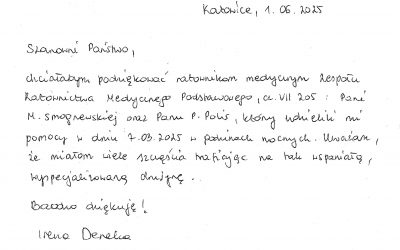 Katowice, 1.06.2025
Szanowni Państwo,
chciałabym podziękować ratownikom medycznym Zespołu
Ratownictwa Medycznego Podstawowego, cz. VII 205 : Pani
M. Smogrzewskiej oraz Panu P. Polis, którzy udzielili mi
pomocy w dniu 7.03.2025 w godzinach nocnych. Uważam,
że miałam wiele szczęścia trafiając na tak wspaniałą,
wyspecjalizowaną drużynę.
Bardzo dziękuję!
Irena